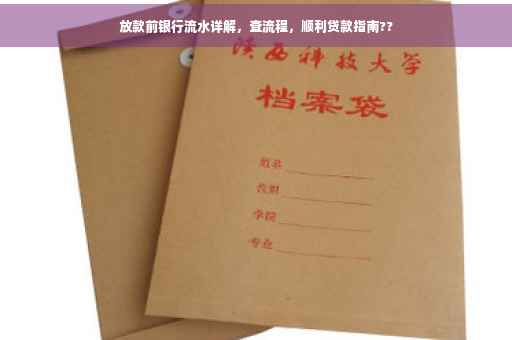 放款前银行流水详解，查流程，顺利贷款指南??
陕西科技大学
档案袋
姓名
学院
专业